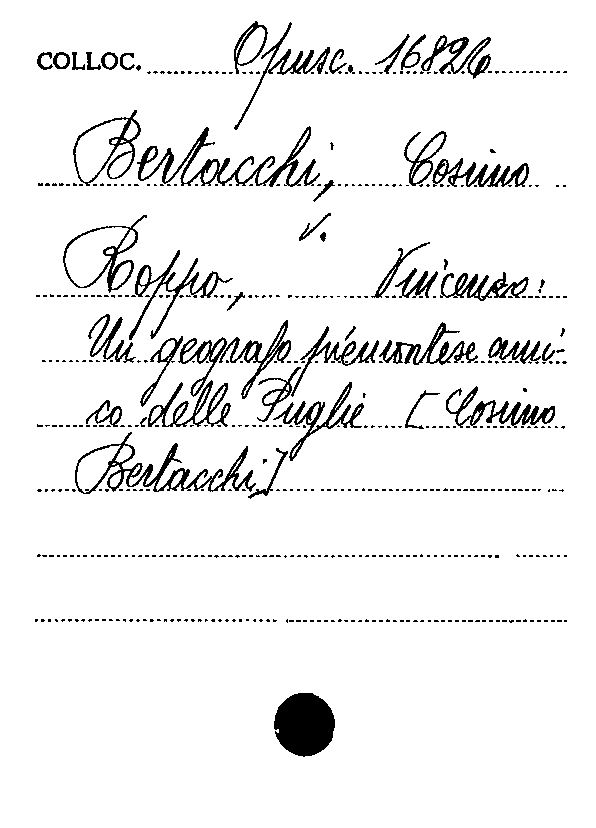 COLLOC. Opusc. 16826
Bertacchi, Cosimo
v.
Roppo, Vincenzo:
Un geografo piemontese ami-
co delle Puglie [Cosimo
Bertacchi]